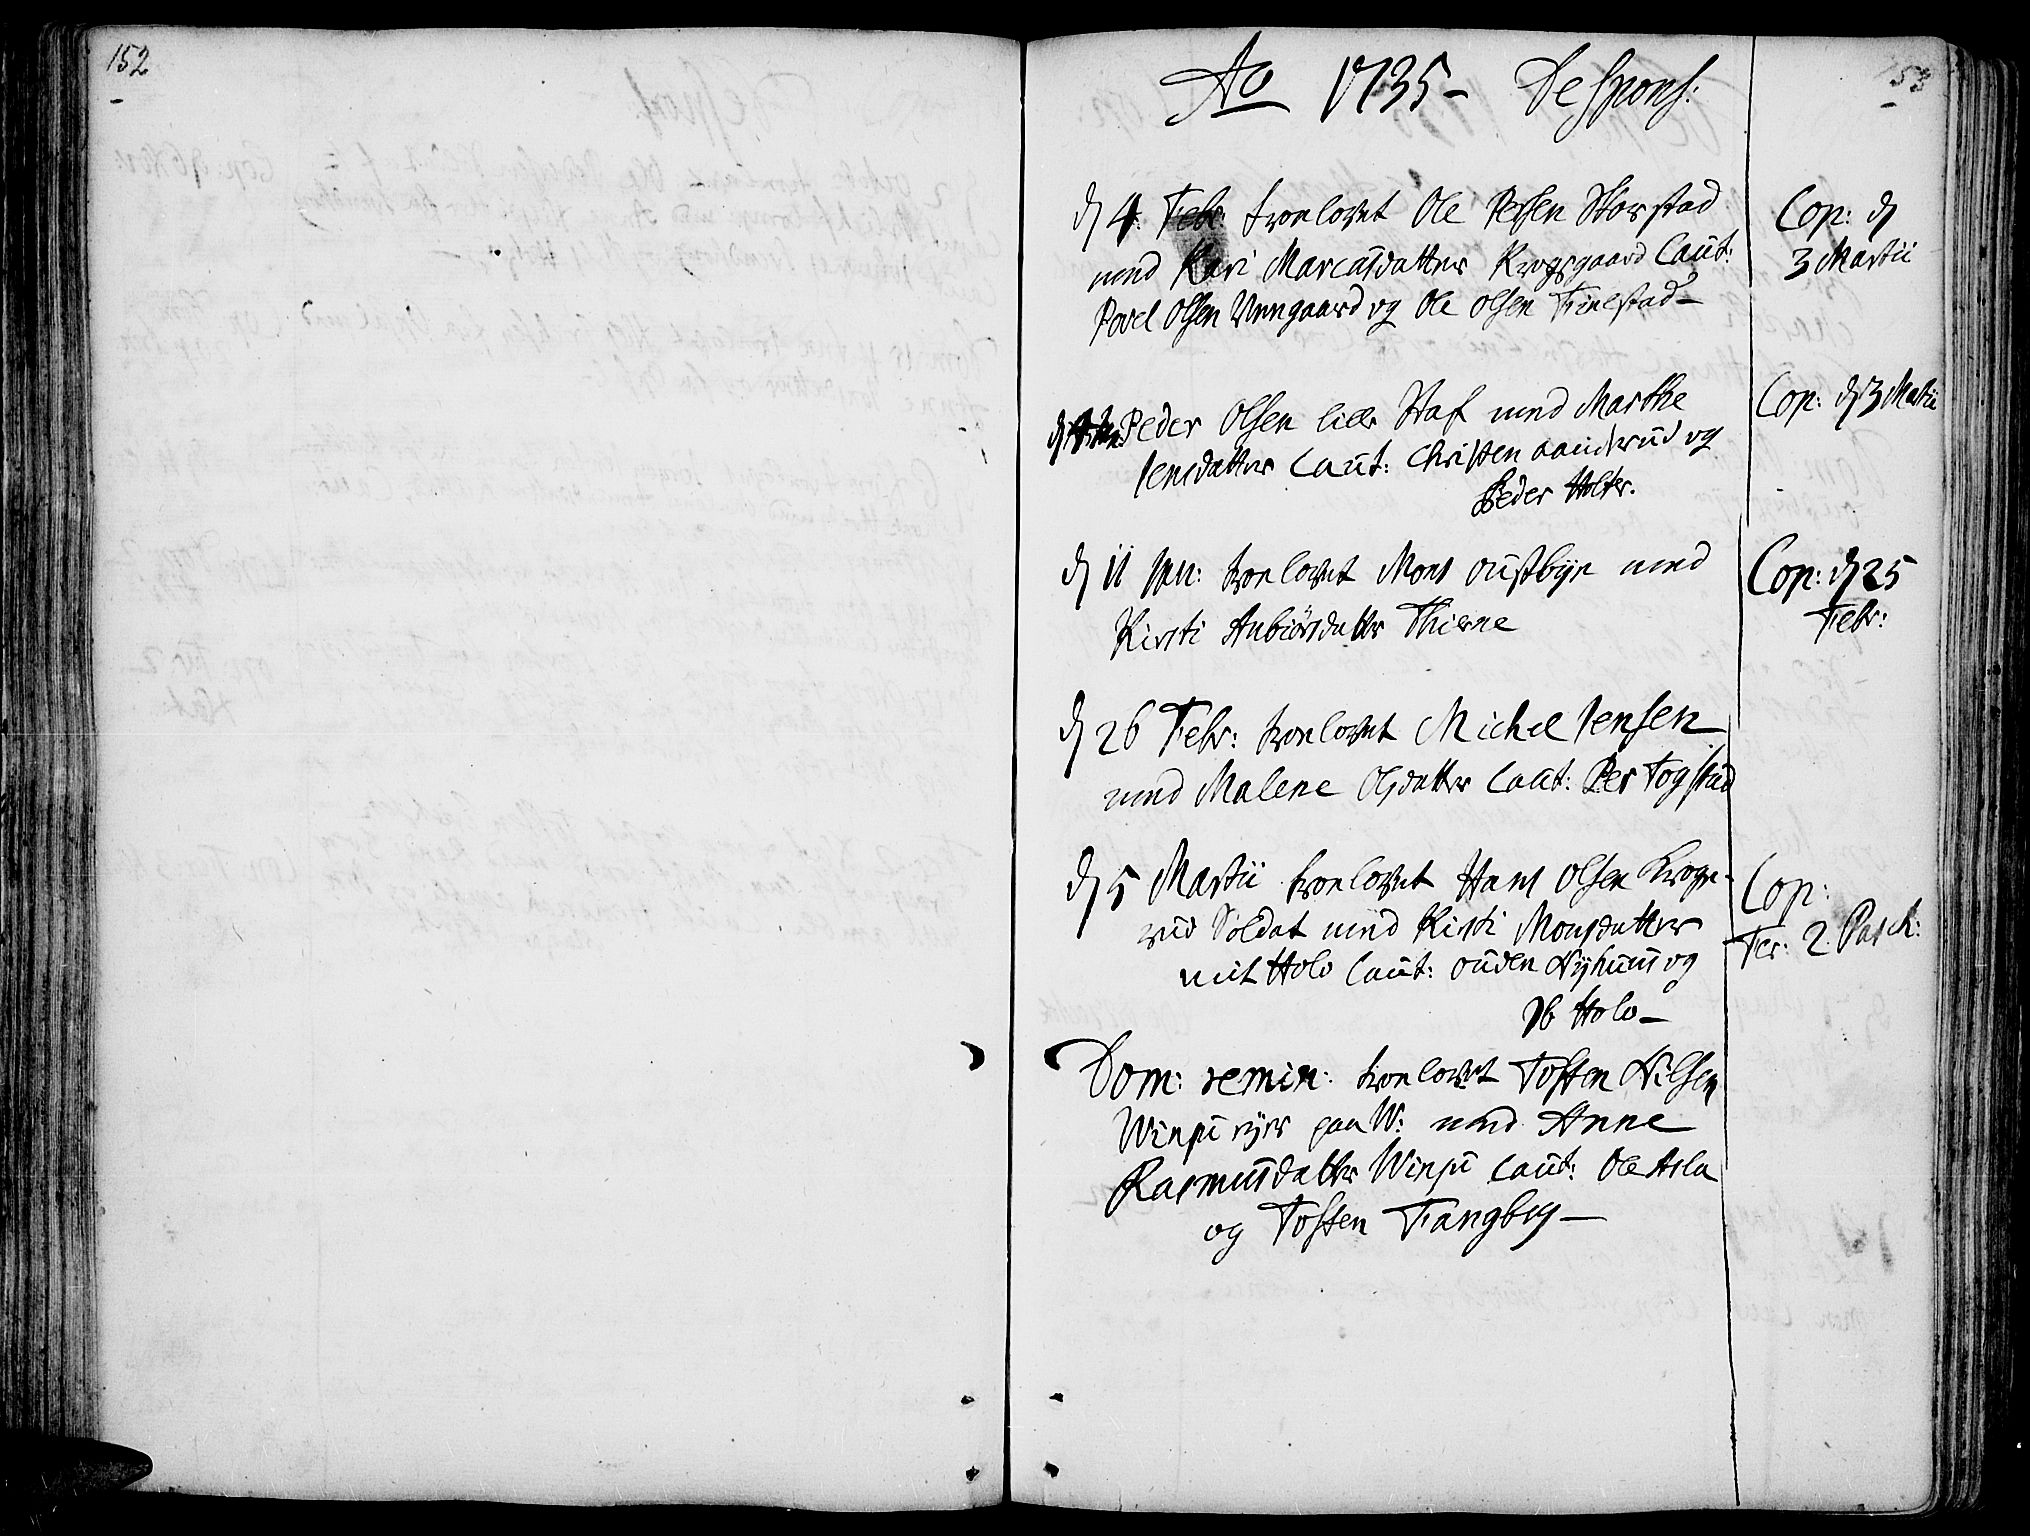 152
53
Ao 1735 - Despons:
d 4. Febr: trolovet Ole Persen Storstad
med Kari Marcusdatter Krogsgaard Caut:
Povel Olsen Unngaard og Ole Olsen Finstad -
Cop: d
3 Martii
Peder Olsen Staf med Marthe
Jensdatter Caut: Christen og
Peder Holter.
Cop: d 3 Martii
d 11 Jan: trolovet Mons oustbye med
Kirsti Anbiörsdatter Thierne
Cop: d 25
Febr:
d 26 Febr: trolovet Michel Jensen
med Malene Olsdatter Caut: Per Togstad
d 5 Martii trolovet Hans Olsen Krogs-
rud Soldat med Kirsti Monsdatter
Holo Caut: ouden Nyhuus og
Ib Holo -
Cop:
Fer: 2. Pasch:
Dom: remin: trolovet Tosten Nilsen
Winju ryer paa W: med Anne
Rasmusdatter Winju Caut: Ole Asla
og Tosten Fangberg -